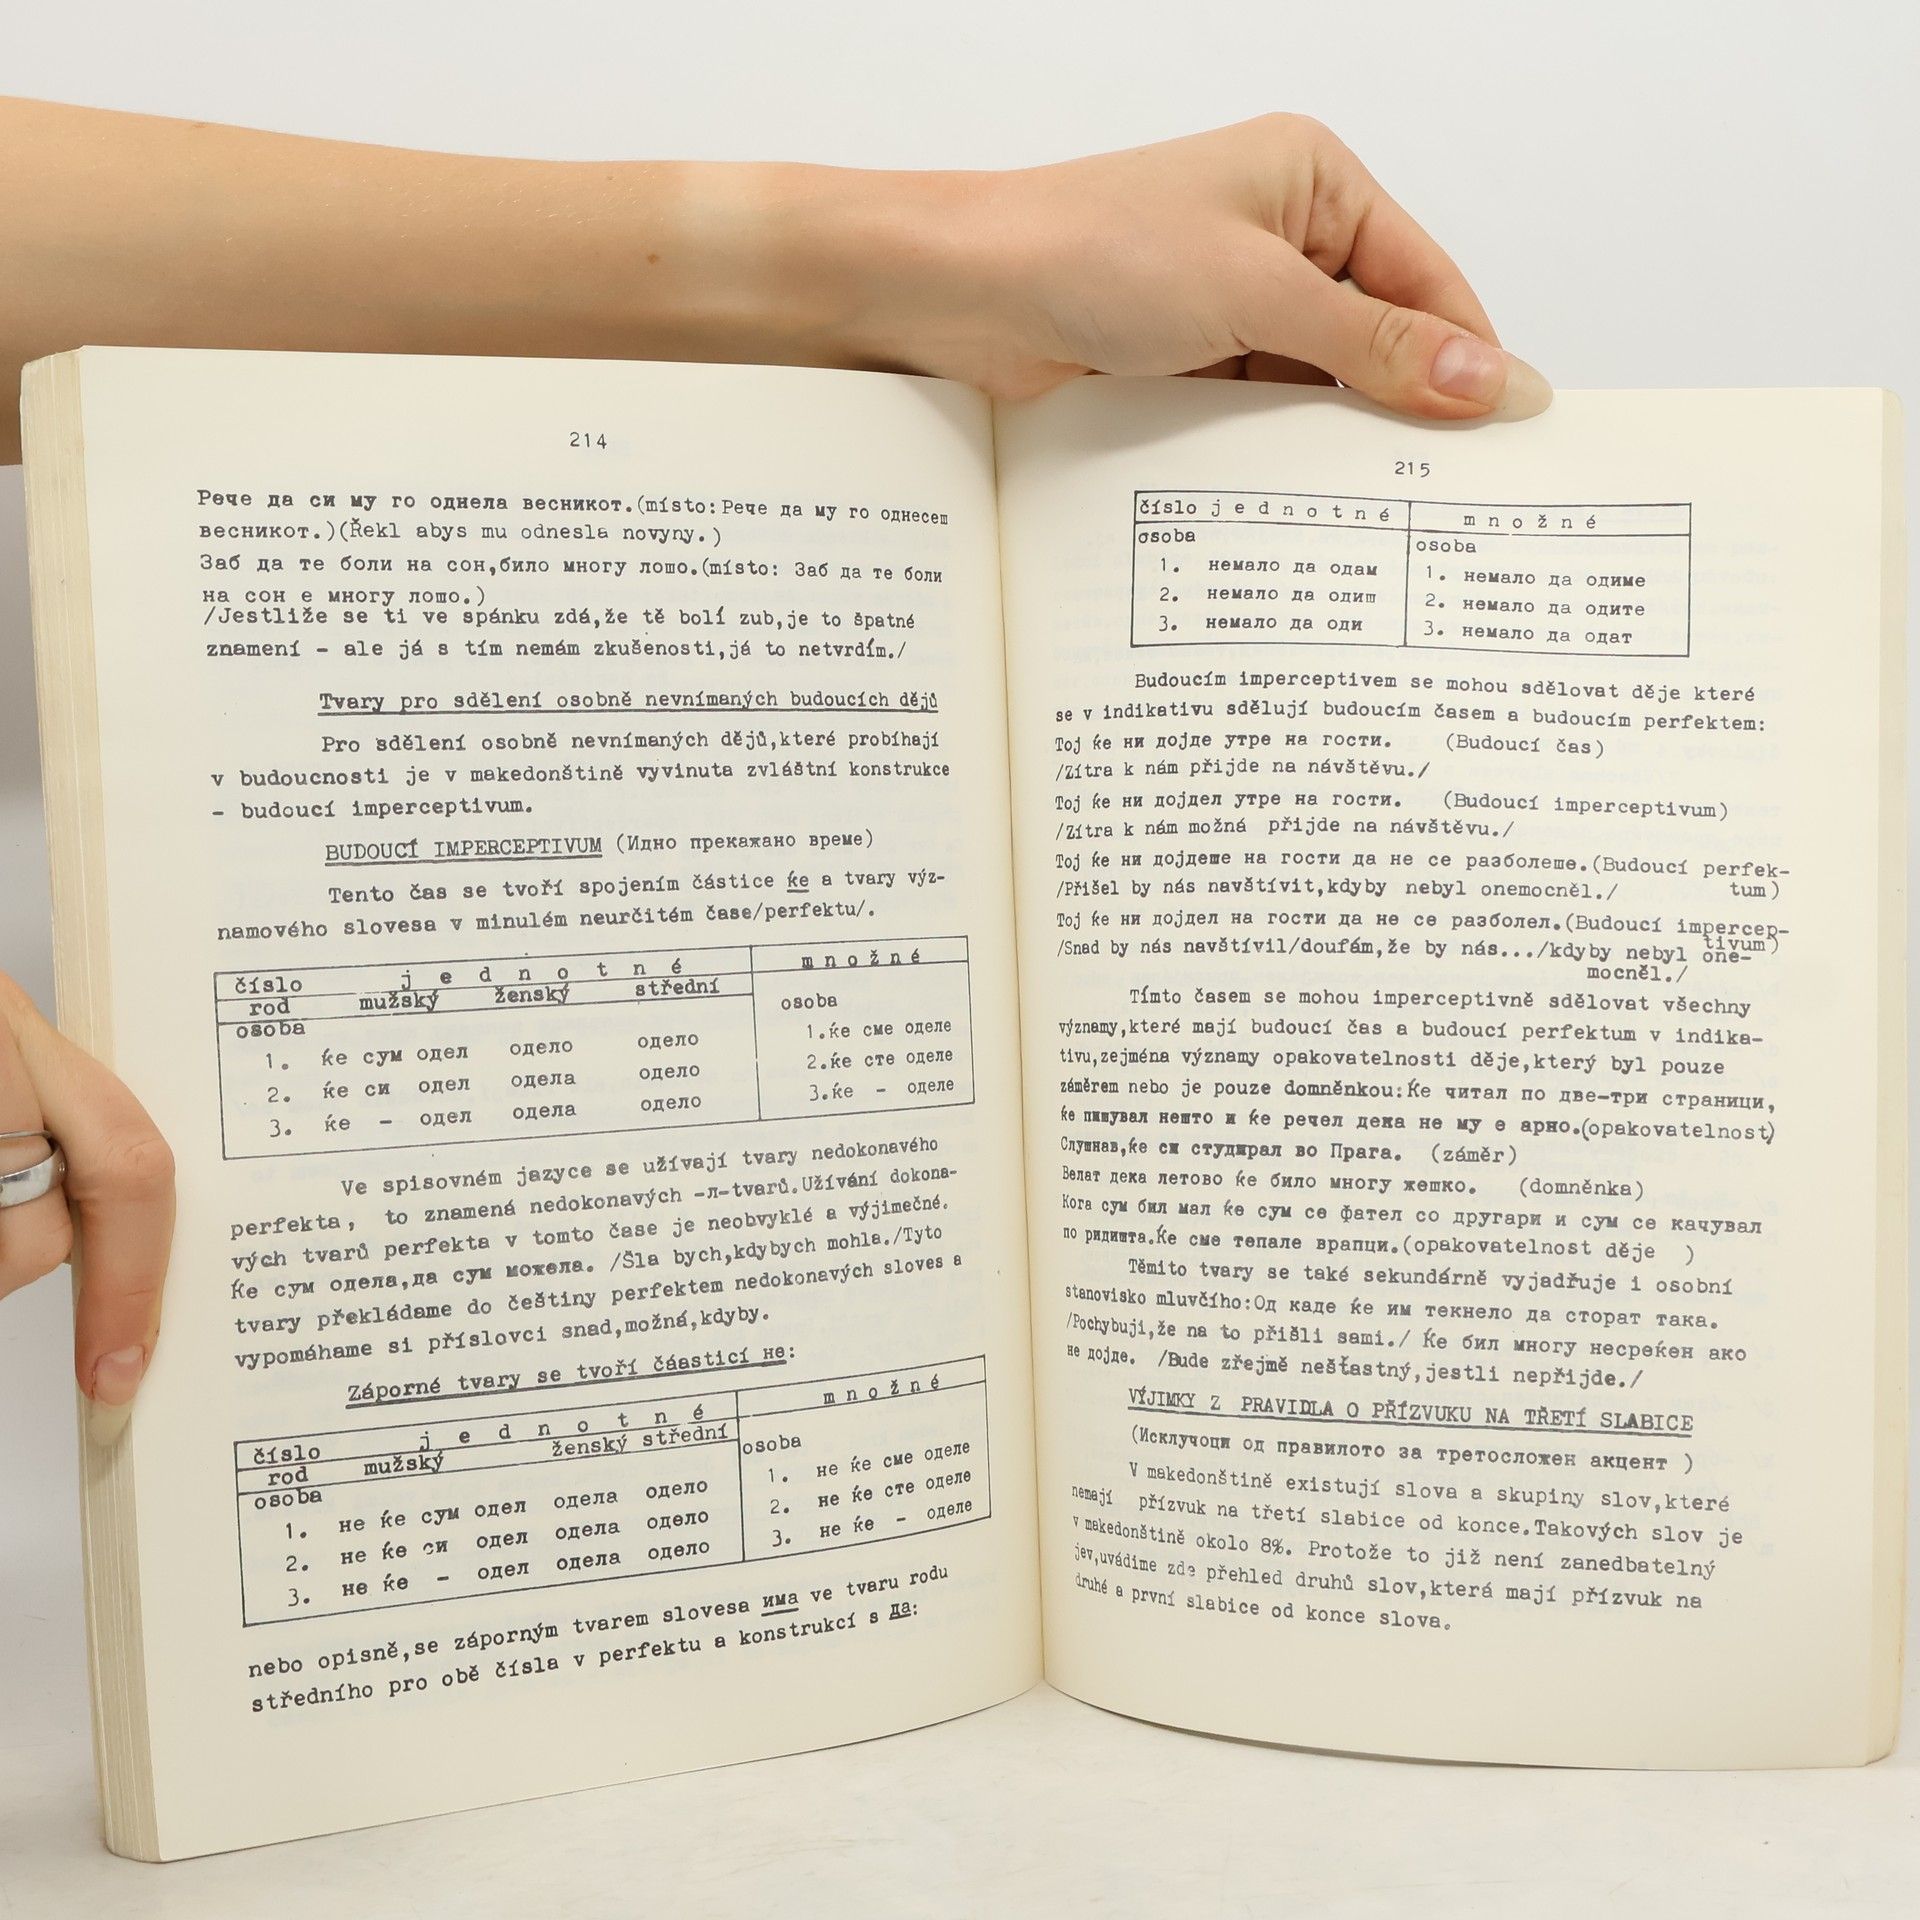 214
Рече да си му го однела весникот.(místo:Рече да му го однесеш
весникот.)(Řekl abys mu odnesla novyny.)
Заб да те боли на сон,било многу лошо.(místo: Заб да те боли
на сон е многу лошо.)
/Jestliže se ti ve spánku zdá,že tě bolí zub,je to špatné
znamení - ale já s tím nemám zkušenosti,já to netvrdím./
Tvary pro sdělení osobně nevnímaných budoucích dějů
Pro sdělení osobně nevnímaných dějů,které probíhají
v budoucnosti je v makedonštině vyvinuta zvláštní konstrukce
- budoucí imperceptivum.
BUDOUCÍ IMPERCEPTIVUM (Идно прекажано време)
Tento čas se tvoří spojením částice ќе a tvary výz-
namového slovesa v minulém neurčitém čase/perfektu/.
číslo j e d n o t n é m n o ž n é
rod mužský ženský střední osoba
osoba
1. ќе сум одел одело одело 1.ќе сме оделе
2. ќе си одел одела одело 2.ќе сте оделе
3. ќе - одел одела одело 3.ќе - оделе
Ve spisovném jazyce se užívají tvary nedokonavého
perfekta, to znamená nedokonavých -л-tvarů.Užívání dokona-
vých tvarů perfekta v tomto čase je neobvyklé a výjimečné.
Ќе сум одела,да сум можела. /Šla bych,kdybych mohla./Tyto
tvary překládame do češtiny perfektem nedokonavých sloves a
vypomáhame si příslovci snad,možná,kdyby.
Záporné tvary se tvoří čáasticí не:
číslo j e d n o t n é m n o ž n é
rod mužský ženský střední osoba
osoba
1. не ќе сум одел одела одело 1. не ќе сме оделе
2. не ќе си одел одела одело 2. не ќе сте оделе
3. не ќе - одел одела одело 3. не ќе - оделе
nebo opisně,se záporným tvarem slovesa има ve tvaru rodu
středního pro obě čísla v perfektu a konstrukcí s да:
215
číslo j e d n o t n é m n o ž n é
osoba osoba
1. немало да одам 1. немало да одиме
2. немало да одиш 2. немало да одите
3. немало да оди 3. немало да одат
Budoucím imperceptivem se mohou sdělovat děje které
se v indikativu sdělují budoucím časem a budoucím perfektem:
Тој ќе ни дојде утре на гости. (Budoucí čas)
/Zítra k nám přijde na návštěvu./
Тој ќе ни дојдел утре на гости. (Budoucí imperceptivum)
/Zítra k nám možná přijde na návštěvu./
Тој ќе ни дојдеше на гости да не се разболеше.(Budoucí perfek-
/Přišel by nás navštívit,kdyby nebyl onemocněl./ tum)
Тој ќе ни дојдел на гости да не се разболел.(Budoucí impercep-
tivum)
/Snad by nás navštívil/doufám,že by nás.../kdyby nebyl one-
mocněl./
Tímto časem se mohou imperceptivně sdělovat všechny
významy,které mají budoucí čas a budoucí perfektum v indika-
tivu,zejména významy opakovatelnosti děje,který byl pouze
záměrem nebo je pouze domněnkou:Ќе читал по две-три страници,
ќе пишувал нешто и ќе речел дека не му е арно.(opakovatelnost)
Слушнав,ќе си студирал во Прага. (záměr)
Велат дека летово ќе било многу жешко. (domněnka)
Кога сум бил мал ќе сум се фател со другари и сум се качувал
по ридишта.Ќе сме тепале врапци.(opakovatelnost děje )
Těmito tvary se také sekundárně vyjadřuje i osobní
stanovisko mluvčího:Од каде ќе им текнело да сторат така.
/Pochybuji,že na to přišli sami./ Ќе бил многу несреќен ако
не дојде. /Bude zřejmě nešťastný,jestli nepřijde./
VÝJIMKY Z PRAVIDLA O PŘÍZVUKU NA TŘETÍ SLABICE
(Исклучоци од правилото за третосложен акцент )
V makedonštině existují slova a skupiny slov,které
nemají přízvuk na třetí slabice od konce.Takových slov je
v makedonštině okolo 8%. Protože to již není zanedbatelný
jev,uvádíme zde přehled druhů slov,která mají přízvuk na
druhé a první slabice od konce slova.